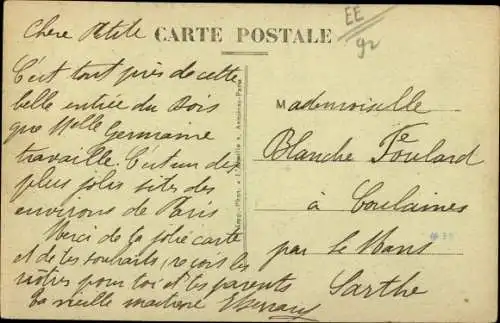 Chère Petite
CARTE POSTALE
EE
92
C'est tout près de cette
belle entrée du Bois
que Melle Germaine
travaille. C'est un des
plus jolis sites des
environs de Paris
Merci de ta jolie carte
et de tes souhaits, reçois les
nôtres pour toi et tes parents
Ta vieille maitresse
Mademoiselle
Blanche Foulard
à Coulaines
par Le Mans
Sarthe